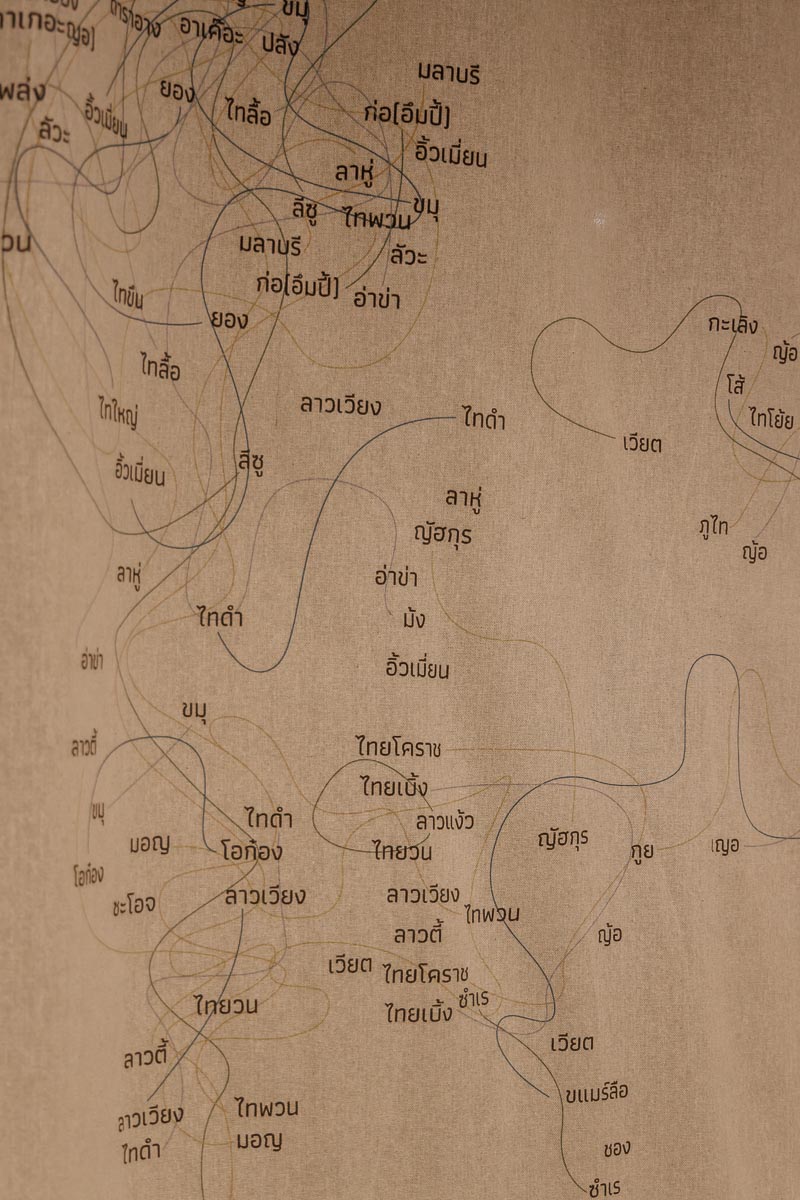 ขมุ
อาเค๊อะ
ปลัง
มลาบรี
ยอง
ไทลื้อ
ก่อ(อึมปี้)
ลัวะ
อิ้วเมี่ยน
อิ้วเมี่ยน
ลาหู่
ลีซู
ไทพวน
ขมุ
มลาบรี
ลัวะ
ก่อ(อึมปี้)
อ่าข่า
ไทขึน
ยอง
กะเลิง
ญ้อ
ไทลื้อ
โส้
ไทใหญ่
ลาวเวียง
ไทดำ
ไทโย้ย
เวียต
อิ้วเมี่ยน
ลีซู
ลาหู่
ญัฮกุร
ภูไท
ญ้อ
ลาหู่
อ่าข่า
ไทดำ
ม้ง
อ่าข่า
อิ้วเมี่ยน
ขมุ
ลาวตี้
ไทยโคราช
ไทยเบิ้ง
ขมุ
ไทดำ
ลาวแง้ว
มอญ
โอก๋อง
ไทยวน
ญัฮกุร
กูย
เญอ
โอก๋อง
ชะโอจ
ลาวเวียง
ลาวเวียง
ไทพวน
ลาวตี้
ญ้อ
เวียต
ไทยโคราช
ไทยวน
ไทยเบิ้ง
ซำเร
เวียต
ลาวตี้
ขแมร์ลือ
ลาวเวียง
ไทพวน
ไทดำ
มอญ
ชอง
ซำเร